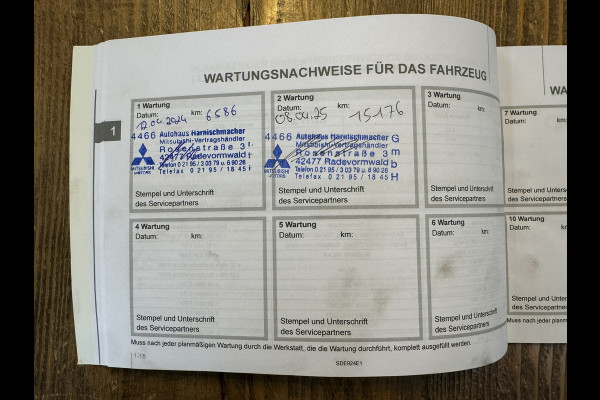 WARTUNGSNACHWEISE FÜR DAS FAHRZEUG
1
1 Wartung
Datum: km: 6586
12.04.2024
4466 Autohaus Harnischmacher
Mitsubishi-Vertragshändler
Rosenstraße 3
42477 Radevormwald
Telefon 0 21 95 / 3 03 79 u. 6 90 26
Telefax 0 21 95 / 18 45
MITSUBISHI
MOTORS
Stempel und Unterschrift
des Servicepartners
2 Wartung
Datum: km:
08.04.25 15176
4466 Autohaus Harnischmacher G
Mitsubishi-Vertragshändler
Rosenstraße 3 m
42477 Radevormwald b
Telefon 0 21 95 / 3 03 79 u. 6 90 26
Telefax 0 21 95 / 18 45 H
MITSUBISHI
MOTORS
Stempel und Unterschrift
des Servicepartners
3 Wartung
Datum: km:
Stempel und Unterschrift
des Servicepartners
4 Wartung
Datum: km:
Stempel und Unterschrift
des Servicepartners
5 Wartung
Datum: km:
Stempel und Unterschrift
des Servicepartners
6 Wartung
Datum: km:
Stempel und Unterschrift
des Servicepartners
Muss nach jeder planmäßigen Wartung durch die Werkstatt, die die Wartung durchführt, komplett ausgefüllt werden.
1-18
SDE924E1
WA
7 Wartung
Datum:
Stempel und
des Servicep
10 Wartung
Datum:
Stempel und
des Servicep
Muss nach jeder